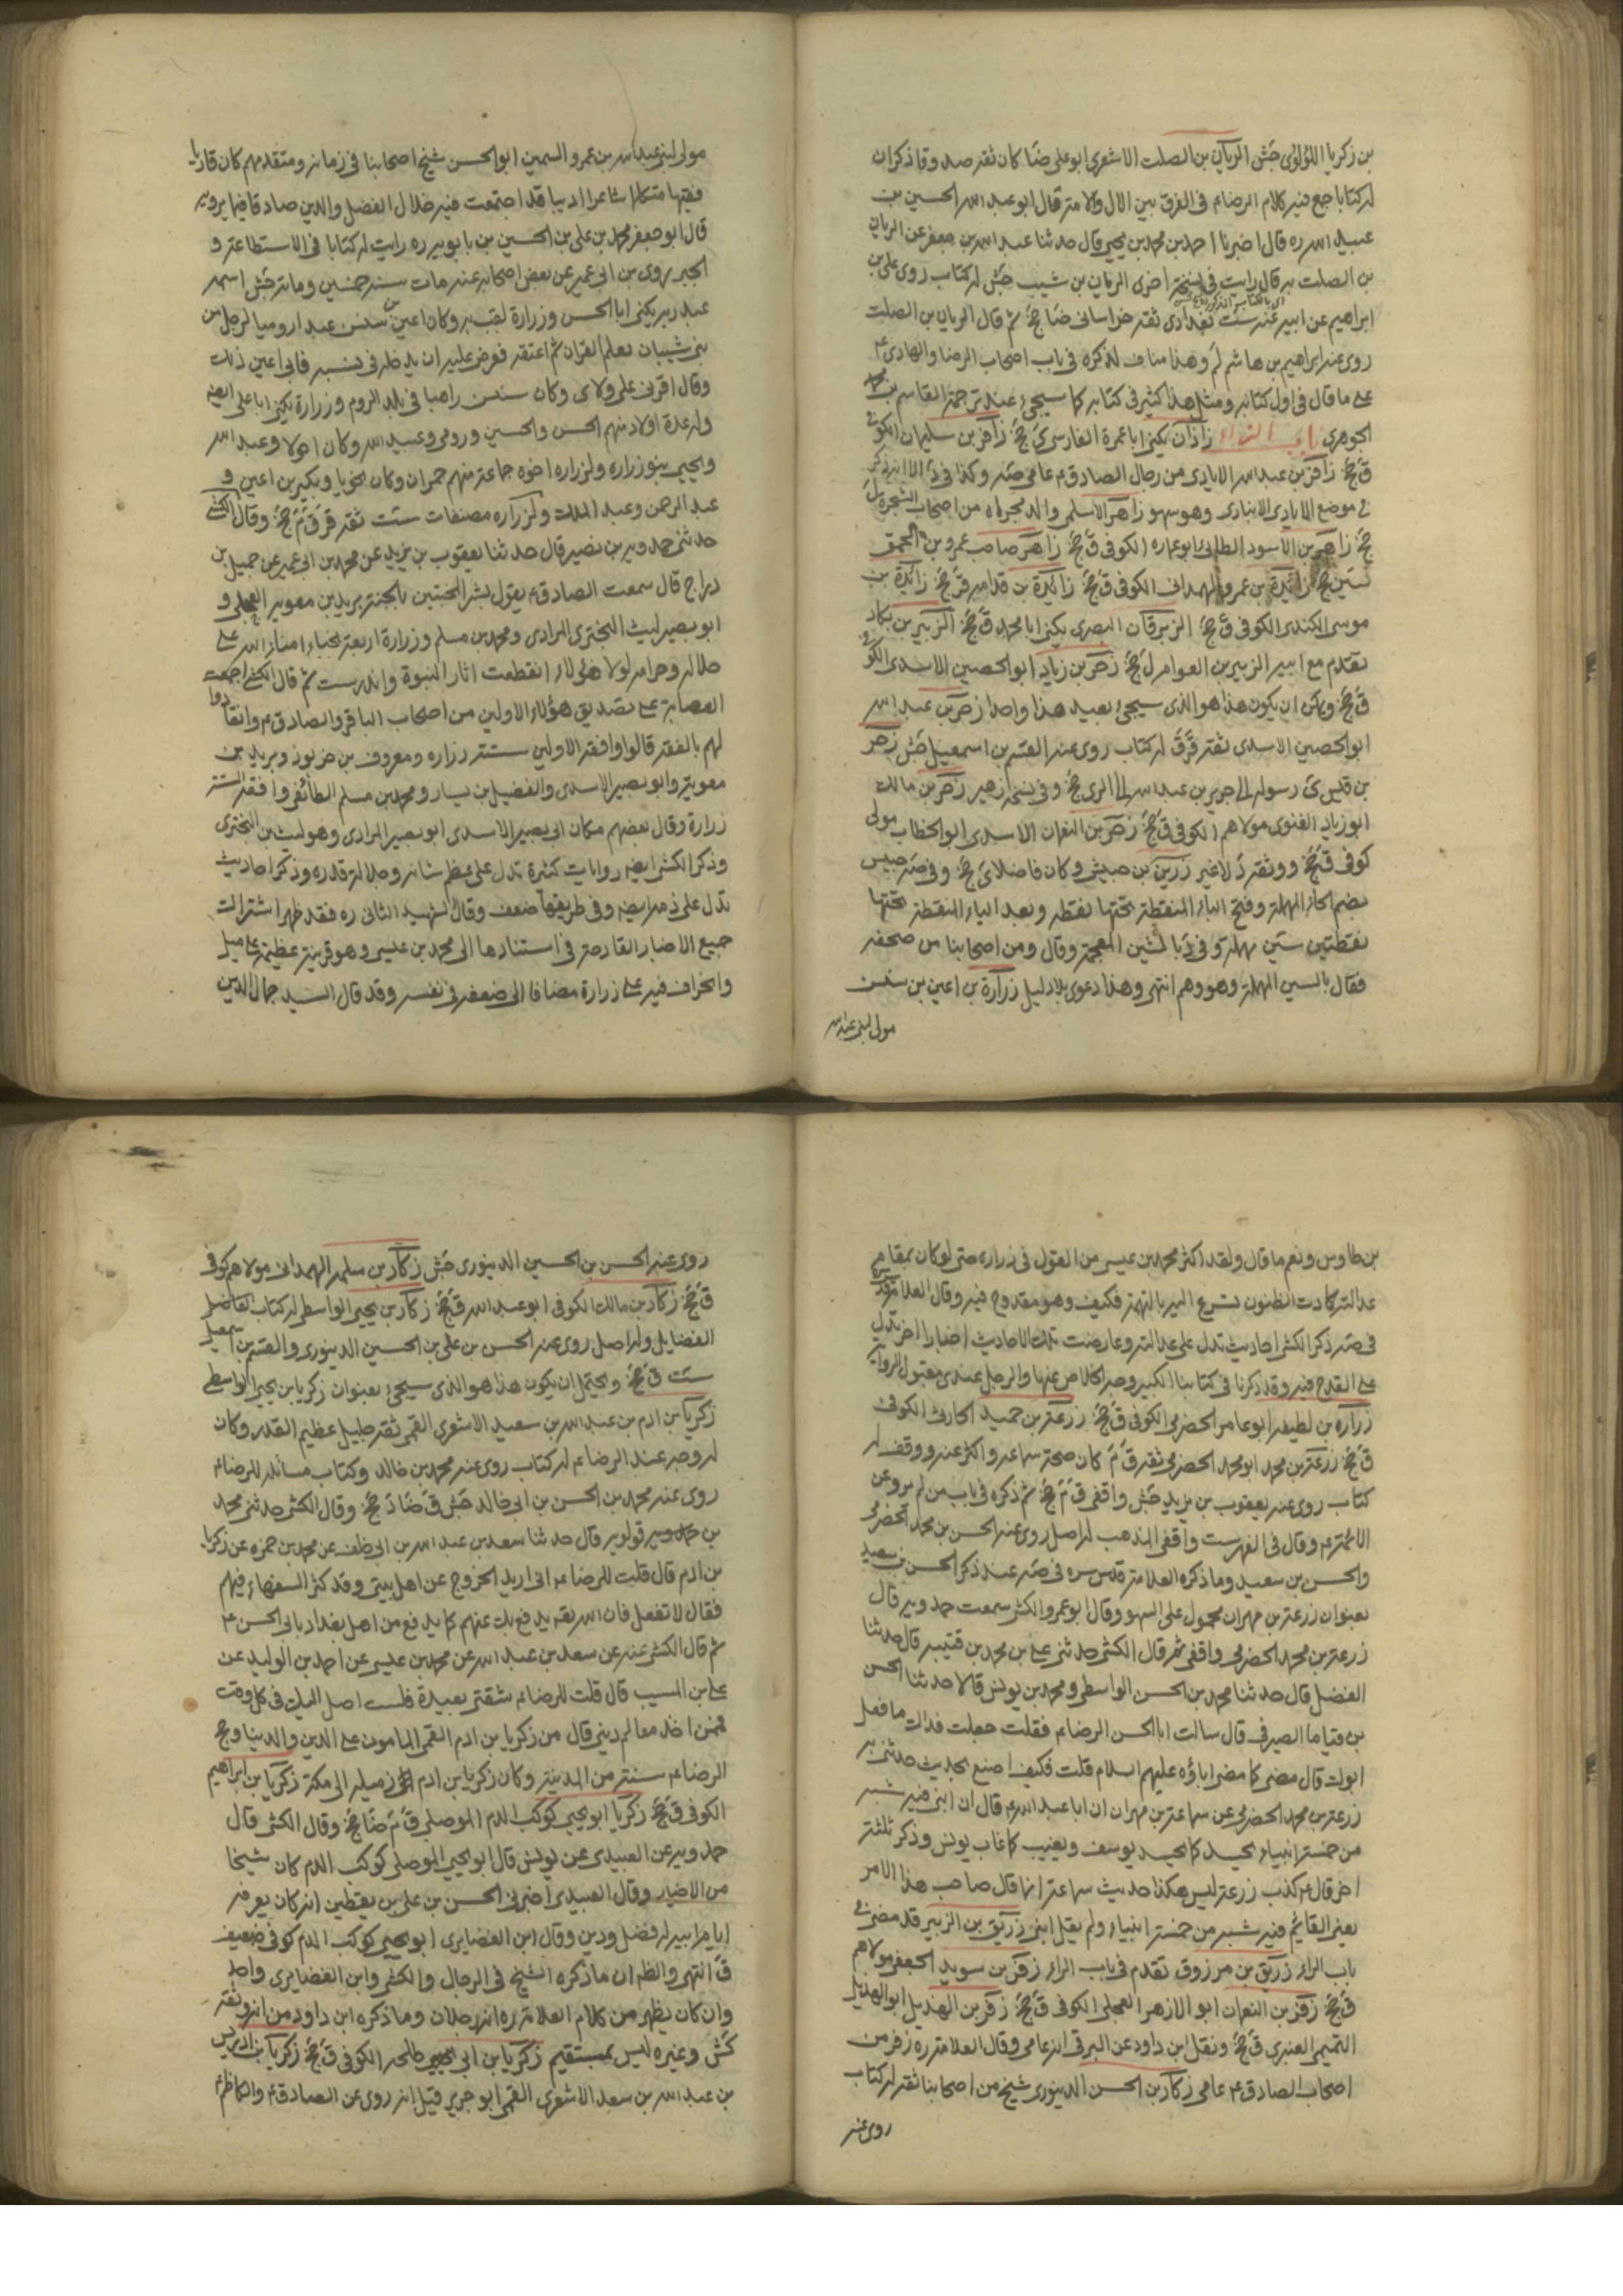 بن زكريا اللؤلؤى جش الريان بن الصلت الاشعرى ابو على ضا كان ثقه صدوقا ذكر ان
له كتابا جمع فيه كلام الرضا ع فى الفرق بين الال والامة قال ابو عبد الله الحسين بن
عبيد الله ره قال اخبرنا احمد بن محمد بن يحيى قال حدثنا عبد الله بن جعفر عن الريان
بن الصلت به قال رايت فى نسخة اخرى الريان بن شبيب جش له كتاب روى على بن
ابراهيم عن ابيه عنه ست بغدادى ثقه خراسانى ضا جخ ثم قال الريان بن الصلت
روى عنه ابراهيم بن هاشم لم وهذا مناف لذكره فى باب اصحاب الرضا والهادى ع
على ما قال فى اول كتابه ومثل هذا كثير فى كتابه كما سيجئ عند ترجمة القاسم بن محمد
الجوهرى باب الزاء زاذان يكنى ابا عمرة الفارسى ى جخ زافر بن سليمان الكوفى
ق جخ زافر بن عبد الله الايادى من رجال الصادق ع عامى صه وكذا فى د الا انه ذكر
فى موضع الايادى الانبادى وهو سهو زاهر الاسلمى والد مجزاه من اصحاب الشجرة ل
جخ زاهر بن الاسود الطائى ابو عماره الكوفى ق جخ زاهر صاحب عمرو بن الحمق
سين جخ زائدة بن عمرو الهمدانى الكوفى ق جخ زائدة بن قدامه قر جخ زائدة بن
موسى الكندى الكوفى ق جخ الزبرقان البصرى يكنى ابا محمد ق جخ الزبير بن بكار
تقدم مع ابيه الزبير بن العوام ل جخ زحر بن زياد ابو الحصين الاسدى الكوفى
ق جخ ويمكن ان يكون هذا هو الذى سيجئ بعيد هذا واحدا زحر بن عبد الله
ابو الحصين الاسدى ثقه قر ق له كتاب روى عنه القسم بن اسمعيل جش زحر
بن قيس ى رسوله الى جرير بن عبد الله الى الرى جخ وفى نسخة زهير زحر بن مالك
ابو زياد الغنوى مولاهم الكوفى ق جخ زحر بن النعمان الاسدى ابو الخطاب مولى
كوفى ق جخ ووثقه د لا غير زر بن حبيش وكان فاضلا ى جخ وفى صه حبيس
بضم الحاء المهملة وفتح الباء المنقطة تحتها نقطه وبعد الياء المنقطة تحتها
نقطتين سين مهملة وفى د بالشين المعجمة وقال ومن اصحابنا من صحفه
فقال بالسين المهملة وهو وهم انتهى وهذا دعوى بلا دليل زرارة بن اعين بن سنسن
مولى لبنى عبد الله
مولى لبنى عبد الله بن عمرو السمين ابو الحسن شيخ اصحابنا فى زمانه ومتقدمهم كان قاريا
فقيها متكلما شاعرا اديبا قد اجتمعت فيه خلال الفضل والدين صادقا فيما يرويه
قال ابو جعفر محمد بن على بن الحسين بن بابويه ره رايت له كتابا فى الاستطاعة و
الجبر روى بن ابى عمير عن بعض اصحابه عنه مات سنة خمسين ومائة جش اسمه
عبد ربه يكنى ابا الحسن وزرارة لقب به وكان اعين بن سنسن عبدا روميا لرجل من
بنى شيبان تعلم القران ثم اعتقه فعرض عليه ان يدخله فى نسبه فابى اعين ذلك
وقال اقرنى على ولائى وكان سنسن راهبا فى بلد الروم وزرارة يكنى ابا على ايضا
وله عدة اولاد منهم الحسن والحسين ورومى وعبيد الله وكان احولا وعبد الله
ويحيى بنو زرارة ولزراره اخوه جماعة منهم حمران وكان نحويا وبكير بن اعين و
عبد الرحمن وعبد الملك ولزراره مصنفات ست ثقه قر ق م جخ وقال الكشى
حدثنى حمدويه بن نصير قال حدثنا يعقوب بن يزيد عن محمد بن ابى عمير عن جميل بن
دراج قال سمعت الصادق ع يقول بشر المخبتين بالجنة بريد بن معويه العجلى و
ابو بصير ليث البخترى المرادى ومحمد بن مسلم وزرارة اربعة نجباء امناء الله على
حلاله وحرامه لولا هؤلاء انقطعت اثار النبوة واندرست ثم قال الكشى اجمعت
العصابة على تصديق هؤلاء الاولين من اصحاب الباقر والصادق ع وانقادوا
لهم بالفقه قالوا وافقه الاولين ستة زراره ومعروف بن خربوذ وبريد بن
معوية وابو بصير الاسدى والفضيل بن يسار ومحمد بن مسلم الطائفى وافقه الستة
زرارة وقال بعضهم مكان ابى بصير الاسدى ابو بصير المرادى وهو ليث بن البخترى
وذكر الكشى ايضه روايات كثيرة تدل على عظم شانه وجلالة قدره وذكر احاديث
تدل على ذمه ايضه وفى طريقها ضعف وقال الشهيد الثانى ره فقد ظهر اشتراك
جميع الاخبار القادحة فى استنادها الى محمد بن عيسى وهو قرينة عظيمة على ميل
وانحراف فيه على زرارة مضافا الى ضعفه فى نفسه وقد قال السيد جمال الدين
بن طاوس ونعم ما قال ولقد اكثر محمد بن عيسى من القول فى زراره حتى لو كان بمقام
عدالته كادت الظنون تسرع اليه بالتهمة فكيف وهو مقدوح فيه وقال العلامة
فى صه ذكر الكشى احاديث تدل على عدالته وعارضت تلك الاحاديث اخبار اخر تدل
على القدح فيه وقد ذكرنا فى كتابنا الكبير وجه الخلاص عنها والرجل عندى مقبول الرواية
زرارة بن لطيفه ابو عامر الحضرمى الكوفى ق جخ زرعة بن حميد الحارثى الكوفى
ق جخ زرعة بن محمد ابو محمد الحضرمى ثقه ق م كان صحب سماعه واكثر عنه ووقف له
كتاب روى عنه يعقوب بن يزيد جش واقفى ق م جخ ثم ذكره فى باب من لم يرو عن
الائمة ع وقال فى الفهرست واقفى المذهب له اصل روى عنه الحسن بن محمد الحضرمى
والحسن بن سعيد وما ذكره العلامة قدس سره فى صه عند ذكر الحسن بن سعيد
بعنوان زرعة بن مهران محمول على السهو وقال ابو عمرو الكشى سمعت حمدويه قال
زرعة بن محمد الحضرمى واقفى ثم قال الكشى حدثنى على بن محمد بن قتيبه قال حدثنا
الفضل قال حدثنا محمد بن الحسن الواسطى ومحمد بن يونس قالا حدثنا الحسن
بن قياما الصيرفى قال سالت ابا الحسن الرضا ع فقلت جعلت فداك ما فعل
ابوك قال مضى كما مضى اباؤه عليهم السلام قلت فكيف اصنع بحديث حدثنى به
زرعة بن محمد الحضرمى عن سماعة بن مهران ان ابا عبد الله ع قال ان ابنى فيه شبه
من خمسة انبياء يحسد كما يحسد يوسف ويغيب كما غاب يونس وذكر ثلثة
اخر قال ع كذب زرعة ليس هكذا حديث سماعة انما قال صاحب هذا الامر
يعنى القايم فيه شبه من خمسة انبياء ولم يقل ابنى زريق بن الزبير قد مضى فى
باب الراء زريق بن مرزوق تقدم فى باب الراء زفر بن سويد الجعفى مولاهم
ق جخ زفر بن النعمان ابو الازهر العجلى الكوفى ق جخ زفر بن الهذيل ابو الهذيل
التميمى العنبرى ق جخ ونقل ابن داود عن البرقى انه عامى وقال العلامة ره زفر من
اصحاب الصادق ع عامى زكار بن الحسن الدينورى شيخ من اصحابنا ثقه له كتاب
روى عنه
روى عنه الحسن بن الحسين الدينورى جش زكار بن سلمه الهمدانى مولاهم كوفى
ق جخ زكار بن مالك الكوفى ابو عبد الله ق جخ زكار بن يحيى الواسطى له كتاب
الفضايل وله اصل روى عنه الحسن بن على بن الحسين الدينورى والقسم بن اسمعيل
ست ق جخ ويحتمل ان يكون هذا هو الذى سيجئ بعنوان زكريا بن يحيى الواسطى
زكريا بن ادم بن عبد الله بن سعد الاشعرى القمى ثقه جليل عظيم القدر وكان
له وجه عند الرضا ع له كتاب روى عنه محمد بن خالد وكتاب مسائله للرضا ع
روى عنه محمد بن الحسن بن ابى خالد جش ق ضا د جخ وقال الكشى حدثنى محمد
بن قولويه قال حدثنا سعد بن عبد الله بن ابى خلف عن محمد بن حمزه عن زكريا
بن ادم قال قلت للرضا ع انى اريد الخروج عن اهل بيتى وقد كثر السفهاء فيهم
فقال لا تفعل فان الله تعه يدفع بك عنهم كما يدفع من اهل بغداد بابى الحسن ع
ثم قال الكشى عنه عن سعد بن عبد الله عن محمد بن عيسى عن احمد بن الوليد عن
على بن المسيب قال قلت للرضا ع شقتى بعيدة فلست اصل اليك فى كل وقت
فممن اخذ معالم دينى قال من زكريا بن ادم القمى المامون على الدين والدنيا وحج
الرضا ع سنة من المدينة وكان زكريا بن ادم زميله الى مكة زكريا بن ابراهيم
الكوفى ق جخ زكريا ابو يحيى كوكب الدم الموصلى ق م ضا جخ وقال الكشى قال
حمدويه عن العبيدى عن يونس قال ابو يحيى الموصلى كوكب الدم كان شيخا
من الاخيار وقال العبيدى اخبرنى الحسن بن على بن يقطين انه كان يعرفه
ايام ابيه له فضل ودين وقال ابن الغضايرى ابو يحيى كوكب الدم كوفى ضعيف
ق انتهى والظه ان ما ذكره الشيخ فى الرجال والكشى وابن الغضايرى واحد
وان كان يظهر من كلام العلامة ره انه رجلان وما ذكره ابن داود من انه وثقه
كش وغيره ليس بمستقيم زكريا بن ابى طلحه الكوفى ق جخ زكريا بن ادريس
بن عبد الله بن سعد الاشعرى القمى ابو جرير قيل انه روى عن الصادق ع والكاظم ع